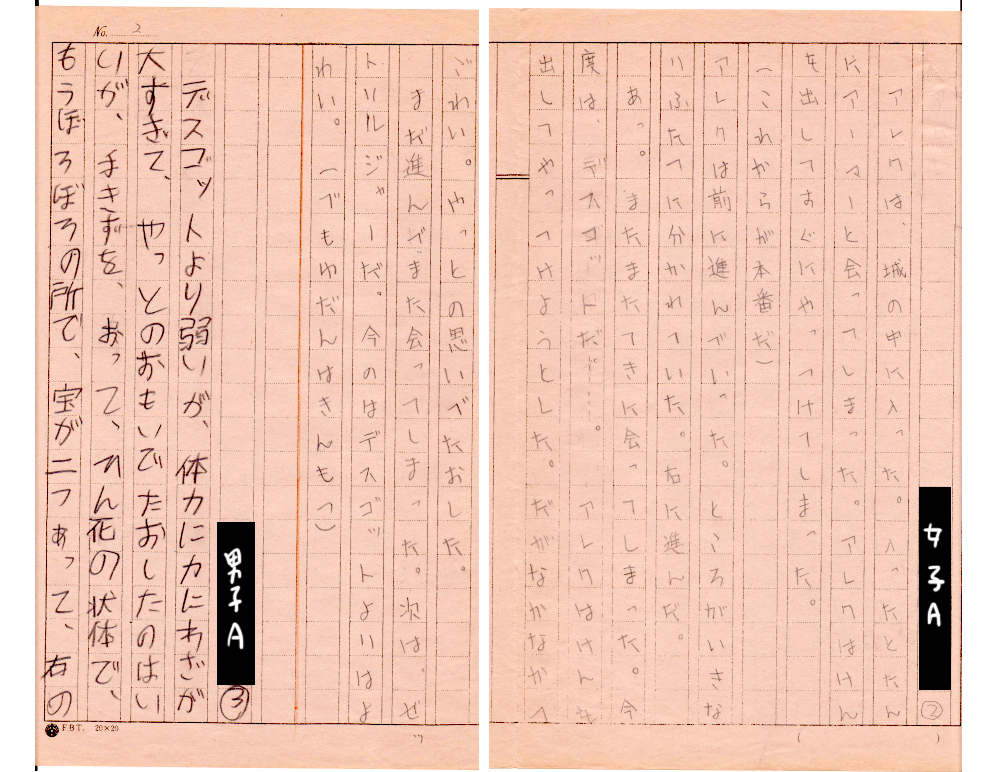 女子A
②
アレクは、城の中に入った。入ったとたん
にアーマーと会ってしまった。アレクはけん
を出してすぐにやっつけてしまった。
(これからが本番だ)
アレクは前に進んでいった。ところがいきな
りふたつに分かれていた。右に進んだ。
あっ。またまたてきに会ってしまった。今
度は、デスゴッドだ……。アレクはけんを
出してやっつけようとした。だがなかなかて
No. 2
ごわい。やっとの思いでたおした。
まだ進んでまた会ってしまった。次は、ゼ
トリルジャーだ。今のはデスゴットよりはよ
わい。(でもゆだんはきんもつ)
男子A
③
デスゴットより弱いが、体力に力にわざが
大すぎて、やっとのおもいでたおしたのはい
いが、手きずを、おって、ひん死の状体で、
もうぼろぼろの所で、宝が二つあって、右の
FBT. 20×20